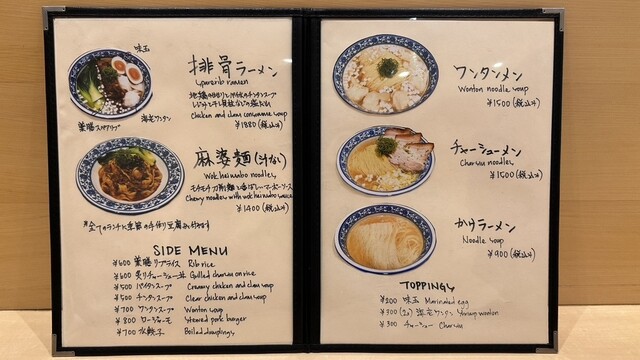 味玉
排骨ラーメン
Sparerib ramen
chicken and clam consomme soup
¥1880(税込み)
薬膳スペアリブ
海老ワンタン
麻婆麺(汁なし)
Wok hei mabo noodles
Chewy noodles with wok hei mabo sauce
¥1400(税込み)
SIDE MENU
¥600 薬膳リブライス Rib rice
¥600 炙りチャーシュー丼 Grilled charsiu on rice
¥500 パイタンスープ Creamy chicken and clam soup
¥500 チンタンスープ Clear chicken and clam soup
¥700 ワンタンスープ Wonton soup
¥800 Steamed pork burger
¥700 水餃子 Boiled dumplings
ワンタンメン
Wonton noodle soup
¥1500(税込み)
チャーシューメン
Charsiu noodles
¥1500(税込み)
かけラーメン
Noodle soup
¥900(税込み)
TOPPINGS
¥200 味玉 Marinated egg
¥300 (2コ) 海老ワンタン Shrimp wonton
¥300 チャーシュー Charsiu